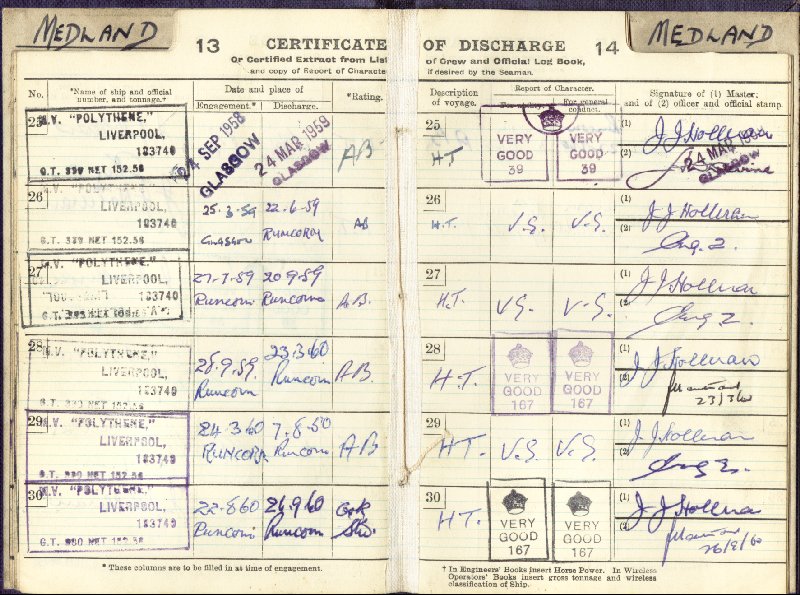 MEDLAND
13 CERTIFICATE OF DISCHARGE 14
MEDLAND
Or Certified Extract from List of Crew and Official Log Book,
and copy of Report of Character if desired by the Seaman.
No.
*Name of ship and official number, and tonnage.†
Date and place of
Engagement.* Discharge.
*Rating.
Description of voyage.
Report of Character.
For ability. For general conduct.
Signature of (1) Master; and of (2) officer and official stamp.
25
M.V. "POLYTHENE,"
LIVERPOOL,
183740
G.T. 330 NET 152.56
24 SEP 1958
GLASGOW
24 MAR 1959
GLASGOW
AB
25
H.T
VERY GOOD 39
VERY GOOD 39
(1) J J Hollman
24 MAR 1959
GLASGOW
26
M.V. "POLYTHENE,"
LIVERPOOL,
183740
G.T. 330 NET 152.56
25-3-59
Glasgow
22-6-59
Runcorn
AB
26
H.T.
V.G. V.G.
(1) J J Hollman
(2)
27
M.V. "POLYTHENE,"
LIVERPOOL,
183740
G.T. 330 NET 152.56
27-7-59
Runcorn
20 9-59
Runcorn
A.B.
27
H.T.
V.G. V.G.
(1) J J Hollman
(2)
28
M.V. "POLYTHENE,"
LIVERPOOL,
183740
G.T. 330 NET 152.56
Runcorn
23.3.60
Runcorn
A.B.
28
H.T.
VERY GOOD 167
VERY GOOD 167
(1) J J Hollman
(2)
23/3/60
29
M.V. "POLYTHENE,"
LIVERPOOL,
183740
G.T. 330 NET 152.56
24 3 60
RUNCORN
Runcorn
AB
29
H.T.
V.G. V.G.
(1) J J Hollman
(2)
30
M.V. "POLYTHENE,"
LIVERPOOL,
183740
G.T. 330 NET 152.56
22-8 60
Runcorn
26.9.60
Runcorn
30
H.T.
VERY GOOD 167
VERY GOOD 167
(1) J J Hollman
(2)
* These columns are to be filled in at time of engagement.
† In Engineers' Books insert Horse Power. In Wireless
Operators' Books insert gross tonnage and wireless
classification of Ship.